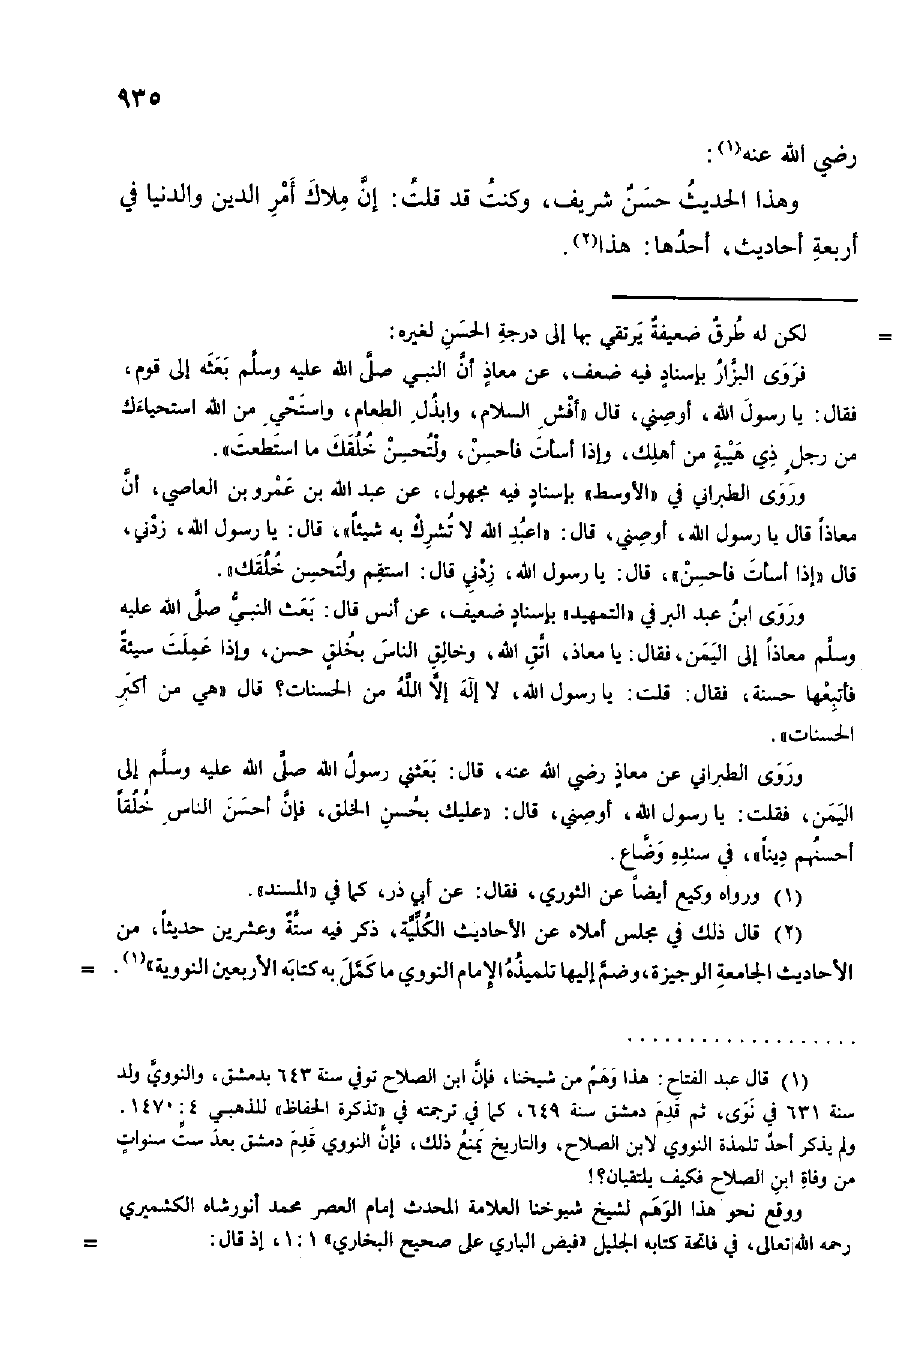 ٩٣٥
رضي الله عنه(١):
وهذا الحديثُ حسَنٌ شريف، وكنتُ قد قلتُ: إنَّ مِلاكَ أَمْرِ الدين والدنيا في
أربعةِ أحاديث، أحدُها: هذا(٢).
= لكن له طُرقٌ ضعيفةٌ يَرتقي بها إلى درجةِ الحسَنِ لغيره:
فرَوَى البزَّارُ بإسنادٍ فيه ضعف، عن معاذٍ أنَّ النبي صلَّى الله عليه وسلَّم بَعَثَه إلى قوم،
فقال: يا رسولَ الله، أوصِني، قال «أَفْشِ السلام، وابذُلِ الطعام، واستَحْيِ من الله استحياءَك
من رجلٍ ذِي هَيْبةٍ من أهلِك، وإذا أسأتَ فأحسِنْ، ولْتُحسِنْ خُلُقَكَ ما استَطعتَ».
ورَوَى الطبراني في «الأوسط» بإسنادٍ فيه مجهول، عن عبد الله بن عَمْرو بن العاصي، أنَّ
معاذاً قال يا رسول الله، أوصِني، قال: «اعبُدِ الله لا تُشرِكْ به شيئاً»، قال: يا رسول الله، زِدْني،
قال «إذا أسأتَ فأحسِنْ»، قال: يا رسول الله، زِدْني قال: استقِم ولتُحسِن خُلُقَك».
ورَوَى ابنُ عبد البر في «التمهيد» بإسنادٍ ضعيف، عن أنس قال: بَعَث النبيُّ صلَّى الله عليه
وسلَّم معاذاً إلى اليَمَن، فقال: يا معاذ، اتَّقِ الله، وخالِقِ الناسَ بخُلقٍ حسن، وإذا عَمِلتَ سيئةً
فأتبِعْها حسنة، فقال: قلت: يا رسول الله، لا إلَهَ إلاَّ اللَّهُ من الحسنات؟ قال «هي من أكبَرِ
الحسنات».
ورَوَى الطبراني عن معاذٍ رضي الله عنه، قال: بَعَثني رسولُ الله صلَّى الله عليه وسلَّم إلى
اليَمَن، فقلت: يا رسول الله، أوصِني، قال: «عليك بحُسنِ الخلق، فإنَّ أحسَنَ الناسِ خُلُقاً
أحسنُهم دِيناً»، في سندِهِ وَضَّاع.
(١) ورواه وكيع أيضاً عن الثوري، فقال: عن أبي ذر، كما في «المسند».
(٢) قال ذلك في مجلس أملاه عن الأحاديث الكُلِّيَّة، ذكر فيه ستَّةً وعشرين حديثاً، من
الأحاديث الجامعةِ الوجيزة، وضمَّ إليها تلميذُهُ الإمام النووي ما كَمَّلَ به كتابَه الأربعين النووية»(١). =
(١) قال عبد الفتاح: هذا وَهَمٌ من شيخنا، فإنَّ ابن الصلاح توفي سنة ٦٤٣ بدمشق، والنوويُّ ولد
سنة ٦٣١ في نَوَى، ثم قَدِمَ دمشق سنة ٦٤٩، كما في ترجمته في «تذكرة الحفاظ» للذهبي ٤: ١٤٧٠.
ولم يذكر أحدٌ تلمذة النووي لابن الصلاح، والتاريخ يَمنَعُ ذلك، فإنَّ النووي قَدِمَ دمشق بعدَ ستِّ سنواتٍ
من وفاةِ ابنِ الصلاح فكيف يلتقيان؟!
ووقع نحوَ هذا الوَهَمِ لشيخ شيوخنا العلامة المحدث إمام العصر محمد أنورشاه الكشميري
رحمه الله تعالى، في فاتحة كتابه الجليل «فيض الباري على صحيح البخاري» ١: ١، إذ قال: =